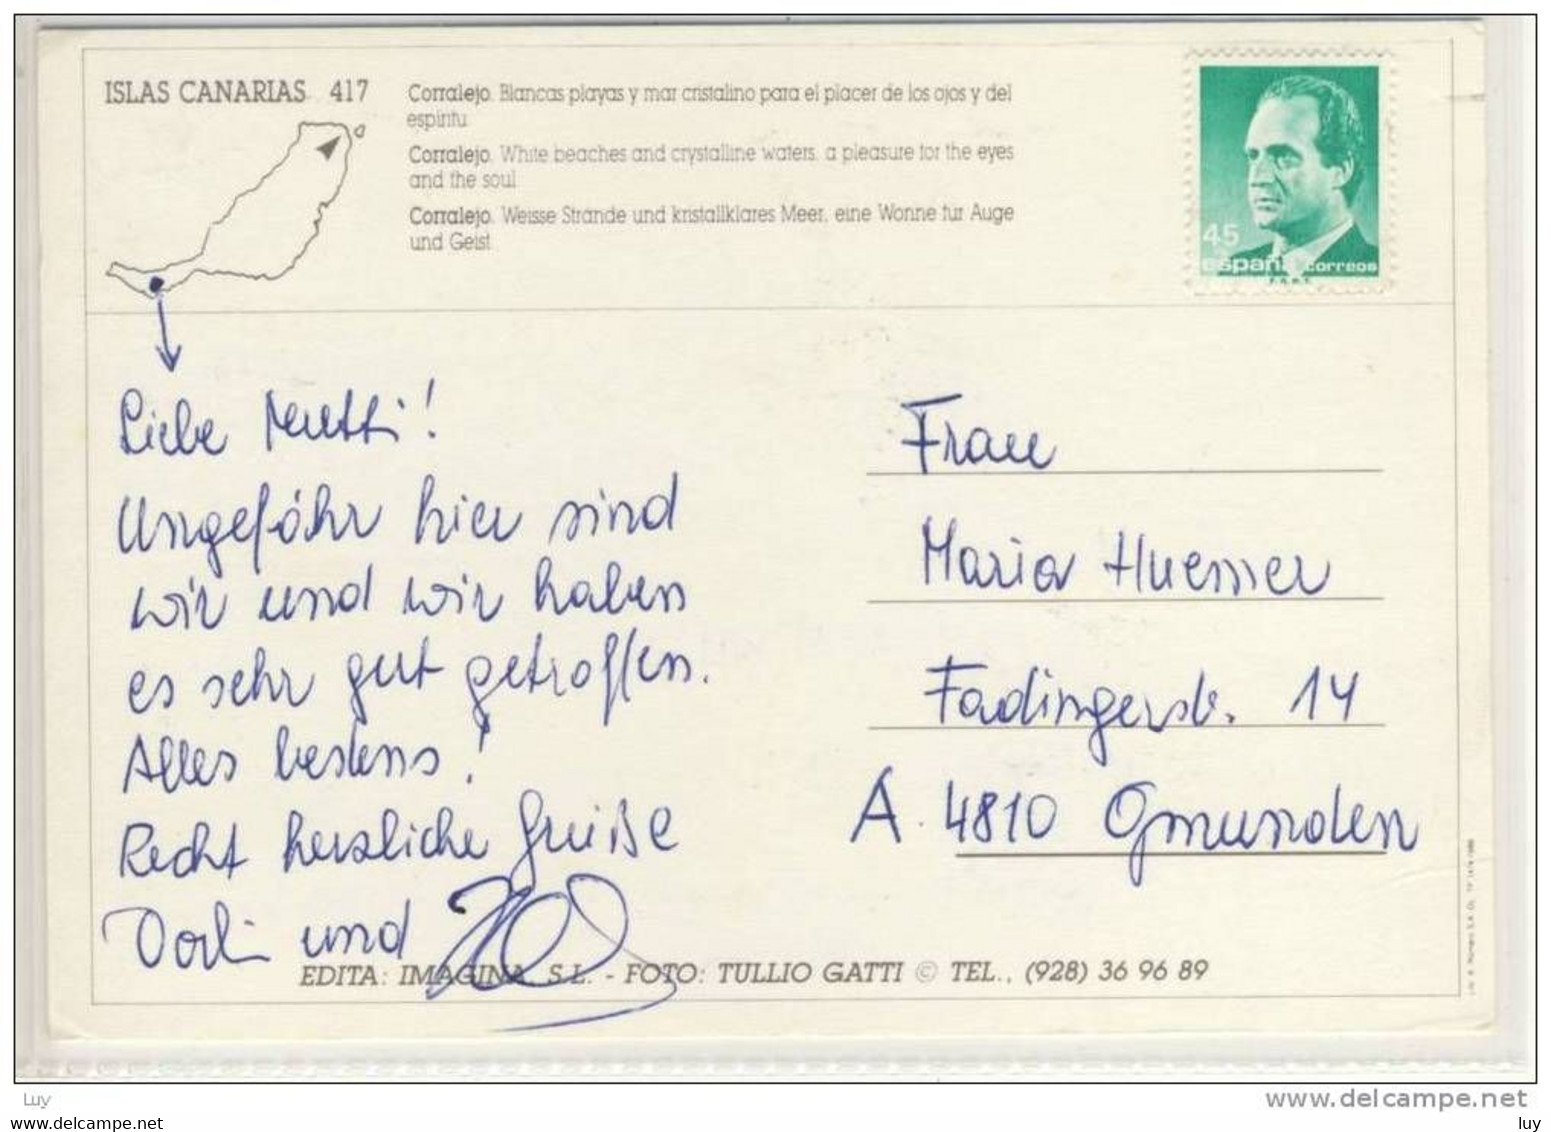 ISLAS CANARIAS 417
Corralejo. Blancas playas y mar cristalino para el placer de los ojos y del
espiritu
Corralejo. White beaches and crystalline waters. a pleasure for the eyes
and the soul
Corralejo. Weisse Strände und kristallklares Meer, eine Wonne für Auge
und Geist
45
españa correos
F.N.M.T.
Liebe Mutti!
Ungefähr hier sind
wir und wir haben
es sehr gut getroffen.
Alles bestens!
Recht herzliche Grüße
und
Frau
Maria Huemer
Fadingerstr. 14
A. 4810 Gmunden
EDITA: IMAGINA S.L. - FOTO: TULLIO GATTI © TEL., (928) 36 96 89
Luy
www.delcampe.net
www.delcampe.net
luy